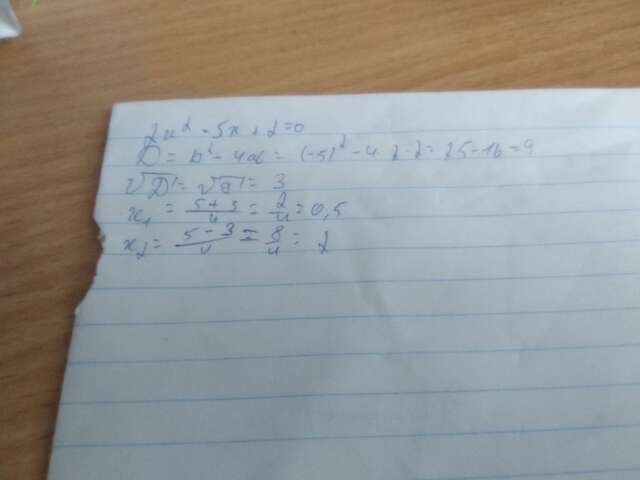 2x² - 5x + 2 = 0
D = b² - 4ac = (-5)² - 4 · 2 · 2 = 25 - 16 = 9
√D = √9 = 3
x₁ = (5 + 3)/4 = 2/4 = 0,5
x₂ = (5 - 3)/4 = 8/4 = 2